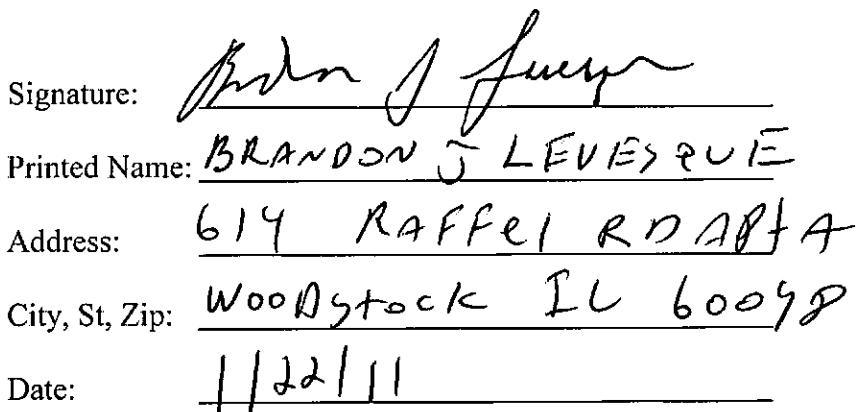 Signature: Brandon J Levesque
Printed Name: BRANDON J LEVESQUE
Address: 614 RAFFel RD APt A
City, St, Zip: WOODstock IL 60098
Date: 1/22/11